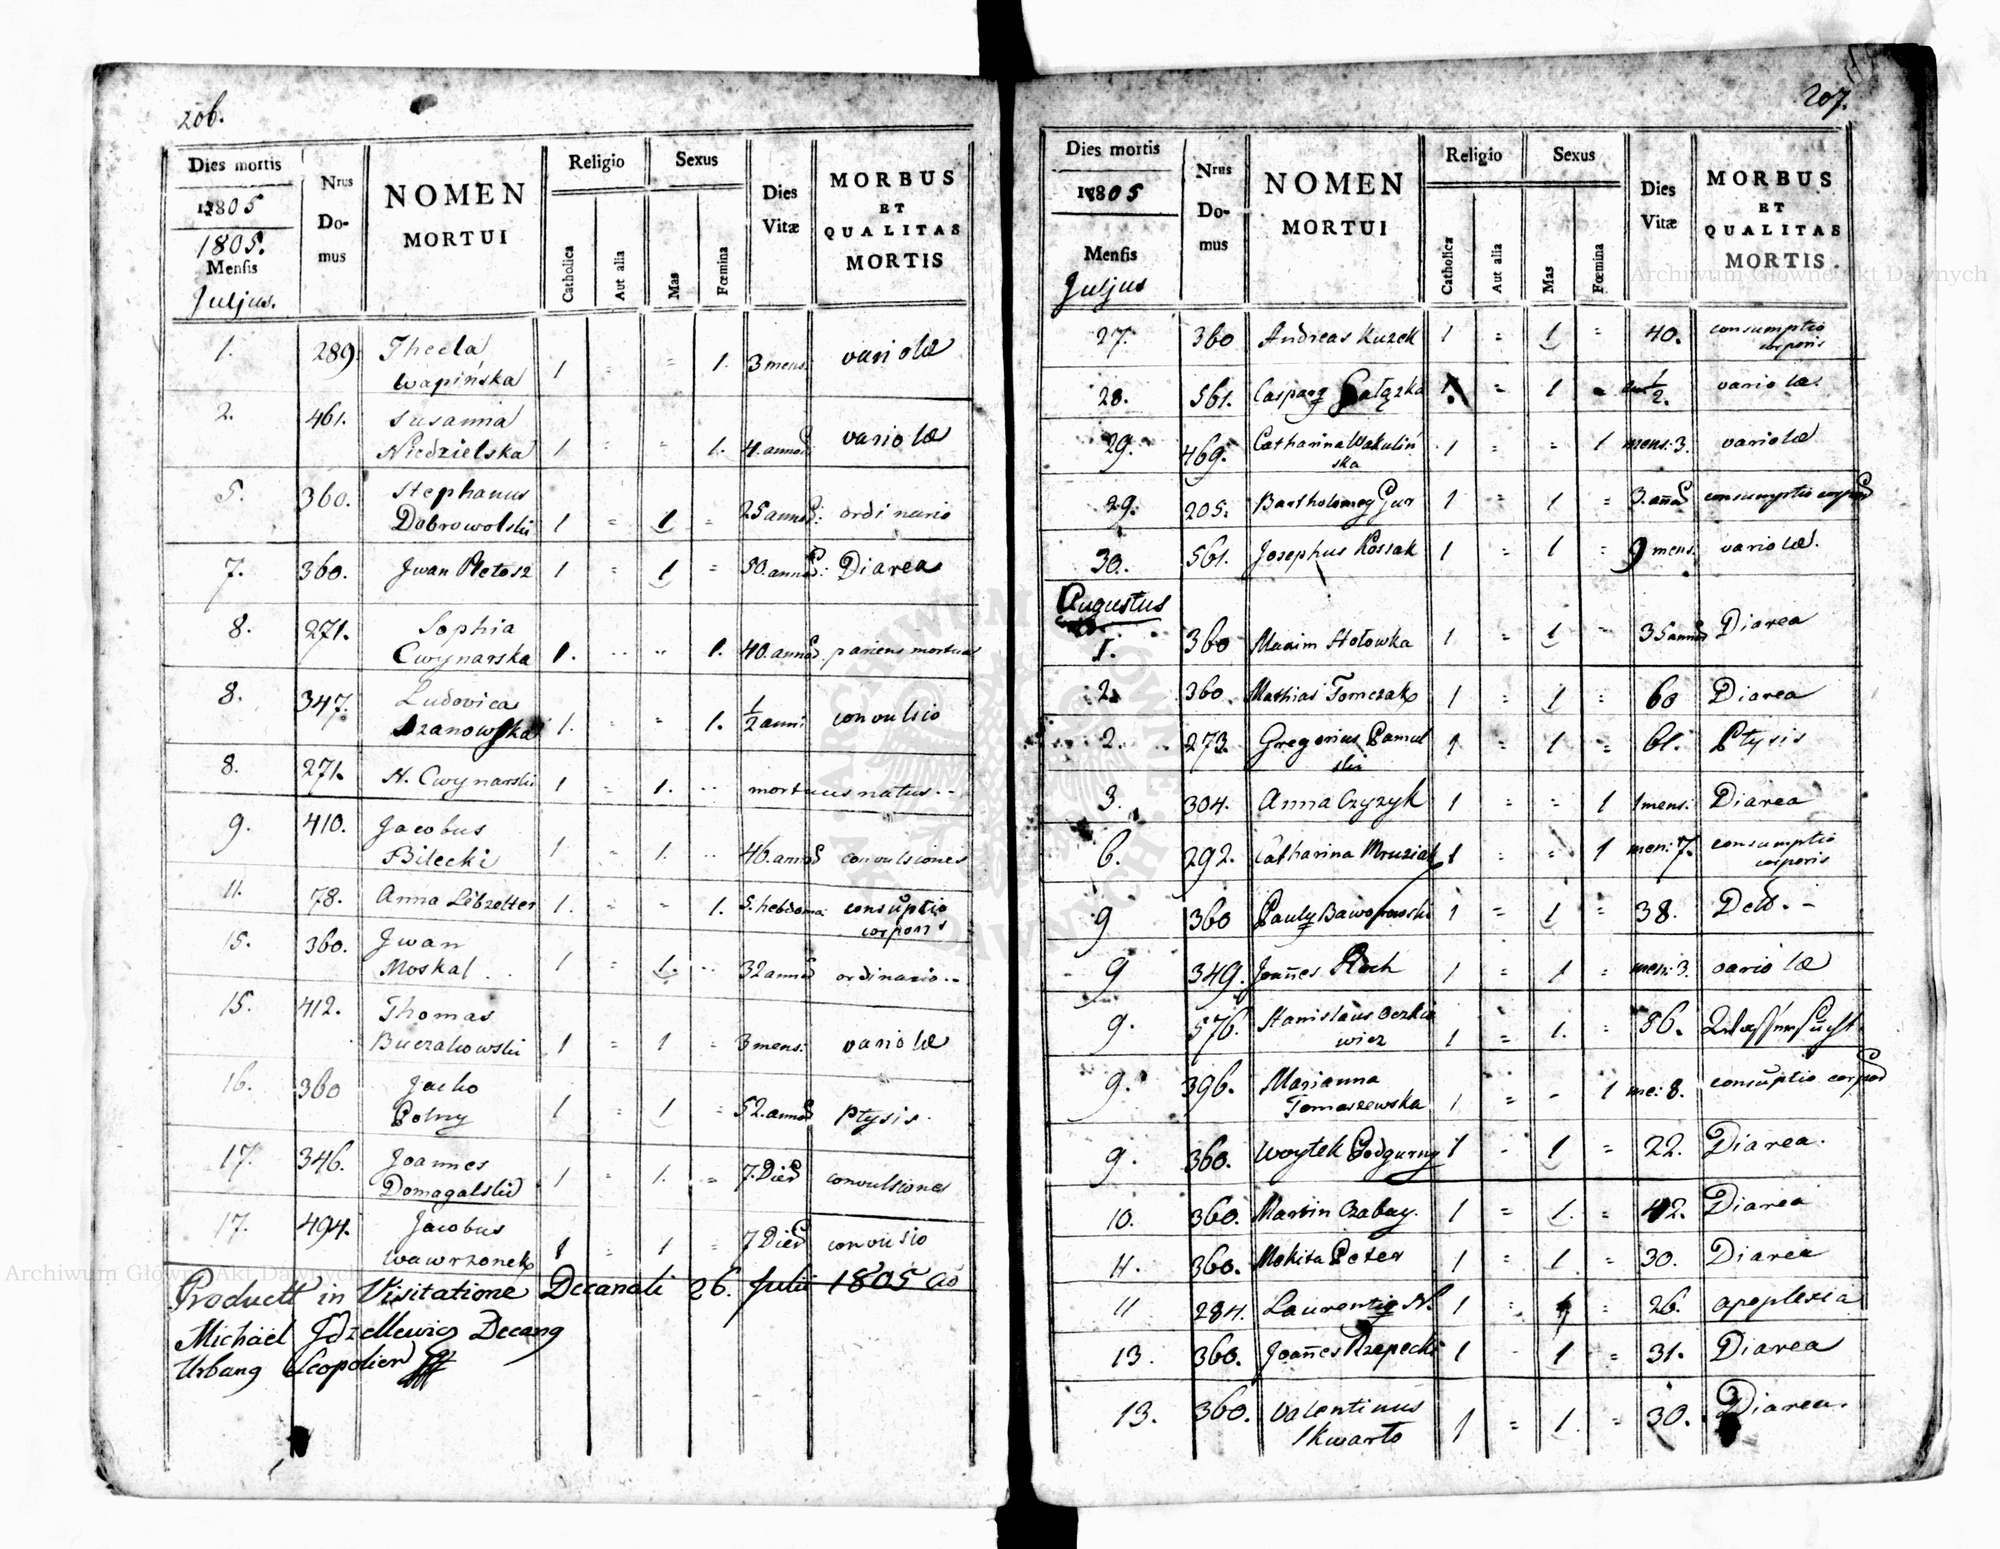 206.
Dies mortis
1805
1805.
Mensis
Juljus.
Nrus Domus
NOMEN MORTUI
Religio
Catholica
Aut alia
Sexus
Mas
Fœmina
Dies Vitæ
MORBUS ET QUALITAS MORTIS
1. 289 Thecla
Wapińska 1 - = 1. 3 mens: variolæ
2. 461. Susanna
Niedzielska 1 = = 1. 4. annor variolæ
5. 360. Stephanus
Dobrowolski 1 = 1 = 25 annor: ordinario
7. 360. Jwan 1 = 1 = 50. annor: Diarea
8. 271. Sophia
Cwynarska 1. .. .. 1. 40. annor pariens mortua
8. 347. Ludovica
1. = = 1. 1/2 anni convulsio
8. 271. N. Cwynarski 1 = 1. .. mortuus natus --
9. 410. Jacobus
Bilecki 1 = 1. .. 46. annor convulsiones
11. 78. Anna Lebzelter 1. = = 1. 5. hebdoma: consuptio
corporis
15. 360. Jwan
Moskal 1 = 1. .. 32 annor ordinario --
15. 412. Thomas
Buczakowski 1 = 1 = 3 mens: variolæ
16. 360 Jacko
Polny 1 = 1 = 52. annor ptysis.
17. 346. Joannes
Domagalski 1 = 1. = 7. Dier convulsiones
17. 494. Jacobus
Wawrzonek 1 = 1 = 7 Dier convulsio
in Visitatione Decanali 26. Julii 1805
Michael Decang
Urbang Leopolien
207.
Dies mortis
1805
Mensis
Juljus
Nrus Domus
NOMEN MORTUI
Religio
Catholica
Aut alia
Sexus
Mas
Fœmina
Dies Vitæ
MORBUS ET QUALITAS MORTIS
27. 360 Andreas Kuzek 1 = 1 = 40. consumptio
corporis
28. 561. Caspang Gałązka 1. = 1 = 1/2. variolæ.
29. 469. Catharina Wakulin
ska 1 = = 1 mens: 3. variolæ
29. 205. Bartholomeg Gur 1 = 1 = 3. annor consumptio corpor
30. 561. Josephus Kossak 1 = 1 = 9 mens. variolæ.
Augustus
1. 360 Maxim Hołowka 1 = 1 = 35 annor Diarea
2. 360 Mathias Tomczak 1 = 1 = 60 Diarea
2. 273. Gregorius Pamul
ski 1 = 1 = 61. Ptysis
3. 304. Anna Czyzyk 1 = = 1 1 mens: Diarea
6. 292. Catharina Mruziak 1 = = 1 men: 7. consumptio
corporis
9 360 Paulg Baworowski 1 = 1 = 38. Detto. -
9 349. Joañes 1 = 1 = men: 3. variolæ
9. 576. Stanislaus Oczkie
wicz 1 = 1. = 86.
9. 396. Marianna
Tomaszewska 1 = - 1 me: 8. consuptio corpor
9. 360. Woytek Podgurny 1 - 1 = 22. Diarea.
10. 360. Martin Czabay. 1 = 1. = 42. Diarea
11. 360. Mokita Peter 1 = 1 = 30. Diarea
11 284. Laurentig N. 1 = 1 = 26. apoplexia
13. 360. Joañes Rzepecki 1 - 1 = 31. Diarea
13. 360. Valentinus
Skwarto 1 = 1. = 30. Diarea.
Archiwum Główne Akt Dawnych
Archiwum Główne Akt Dawnych
ARCHIWUM GŁÓWNE AKT DAWNYCH